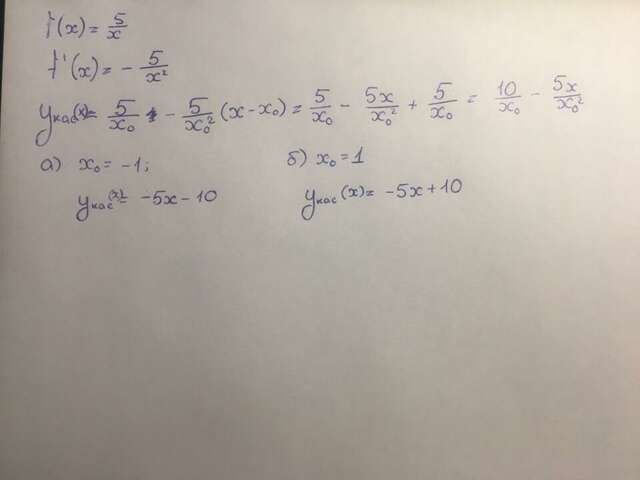 f(x) = 5/x
f'(x) = - 5/x²
yкас(x) = 5/x₀ - 5/x₀² (x - x₀) = 5/x₀ - 5x/x₀² + 5/x₀ = 10/x₀ - 5x/x₀²
а) x₀ = -1; б) x₀ = 1
yкас(x) = -5x - 10 yкас(x) = -5x + 10